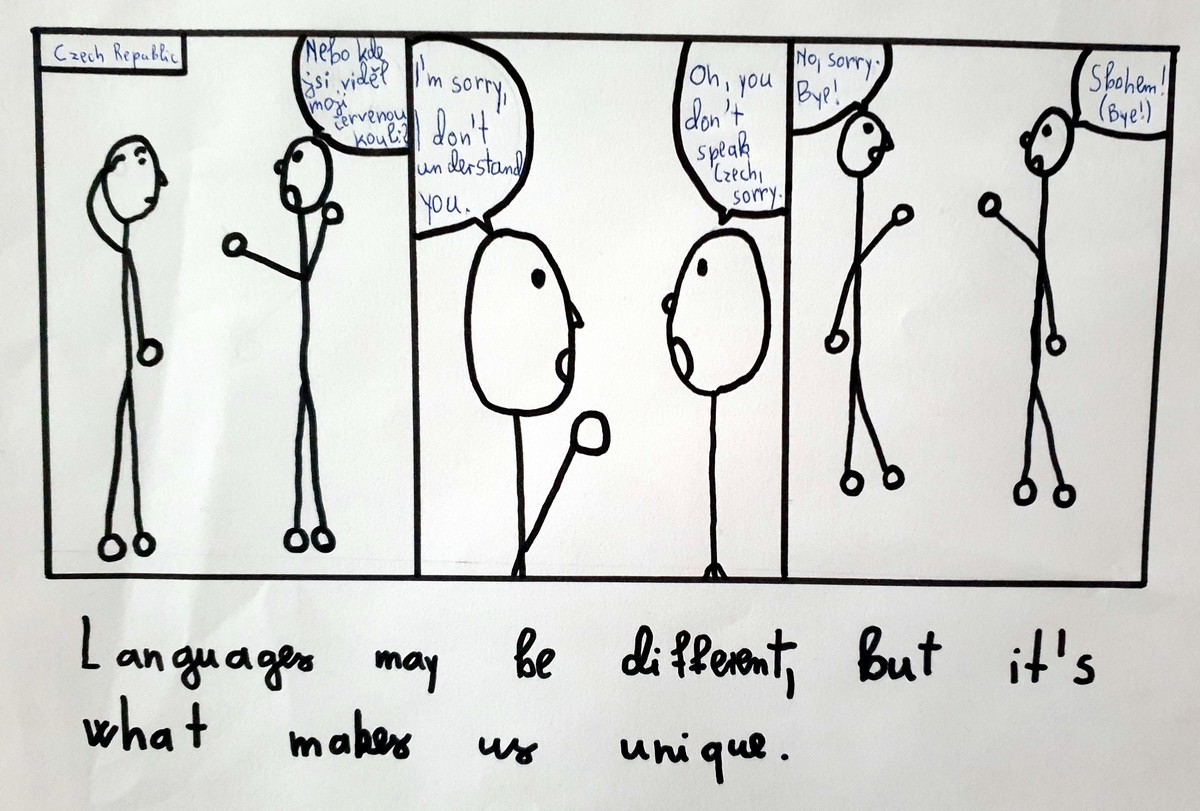 Czech Republic
Nebo kde
jsi viděl
moji
červenou
kouli?
I'm sorry,
I don't
understand
you.
Oh, you
don't
speak
Czech,
sorry.
No, sorry.
Bye!
Sbohem!
(Bye!)
Languages may be different, but it's
what makes us unique.